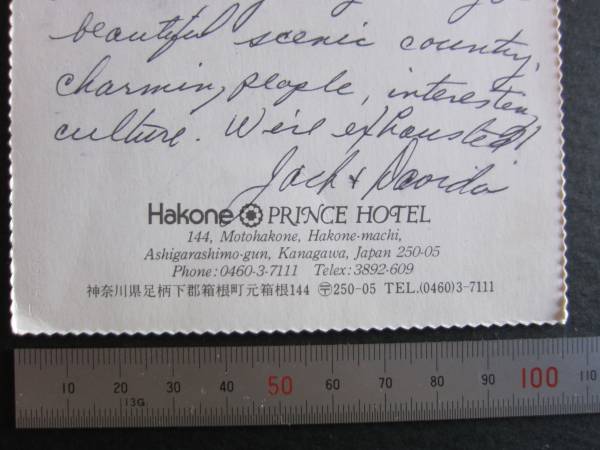 beautiful scenic country,
charmin, people, interesten
culture. We're exhausted!
Jack & Davida
Hakone PRINCE HOTEL
144, Motohakone, Hakone-machi,
Ashigarashimo-gun, Kanagawa, Japan 250-05
Phone:0460-3-7111 Telex:3892-609
神奈川県足柄下郡箱根町元箱根144 〶250-05 TEL.(0460)3-7111
10 20 30 40 50 60 70 80 90 100 110
13G